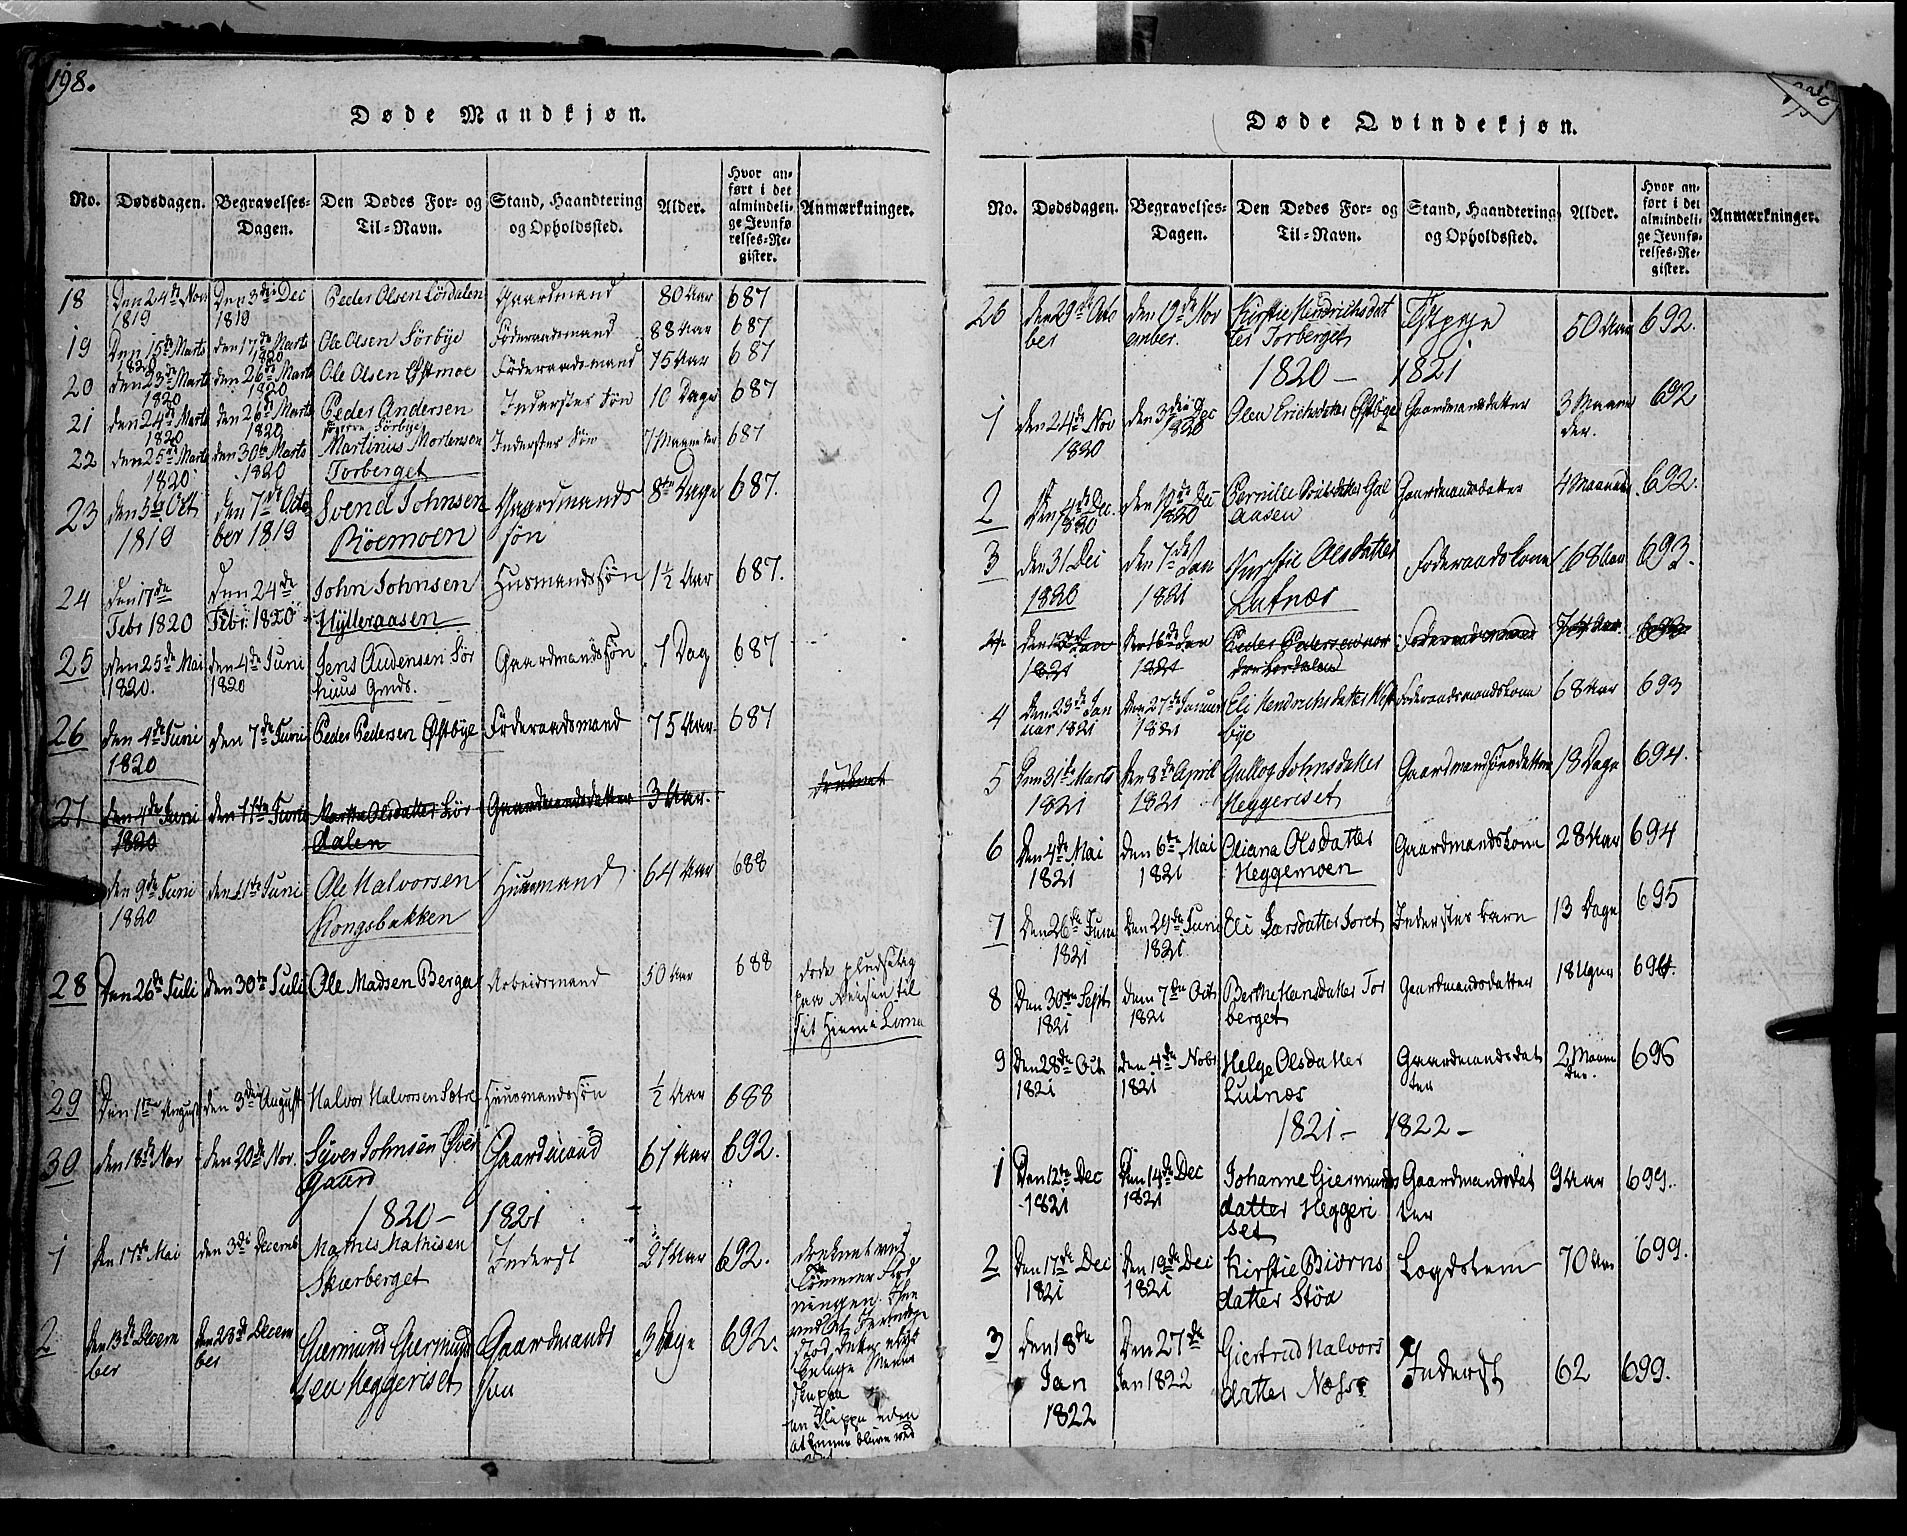 198.
Døde Mandkjøn.
No. Dødsdagen. Begravelses-Dagen. Den Dødes For- og Til-Navn. Stand, Haandtering og Opholdssted. Alder. Hvor anført i det almindelige Jevnførelses-Register. Anmærkninger.
18 Den 24de Nov 1819 Den 3die Dec 1819 Peder Olsen Lørdalen Gaardmand 80 Aar 687
19 Den 15de Marts 1820 den 17de Marts 1820 Ole Olsen Sørbye Føderaadsmand 88 Aar 687
20 den 23de Marts 1820 den 26de Marts 1820 Ole Olsen Østmoe Føderaadsmand 75 Aar 687
21 den 24de Marts 1820 den 26de Marts 1820 Peder Andersen Sørbye Inderstes Søn 10 Dage 687
22 den 25de Marts 1820 den 30te Marts 1820 Martinius Mortensen Torberget Inderstes Søn 7 Maaneder 687
23 den 5te Oct 1819 den 7de October 1819 Svend Johnsen Röemoen Gaardmands søn 8te Dage 687.
24 den 17de Febr 1820 Den 24de Febr: 1820 John Johnsen Hylleraasen Husmandssøn 1½ Aar 687.
25 den 25de Mai 1820. den 4de Juni 1820 Jens Audensen Sørhuus Grnds. Gaardmandssøn 1 Dag 687
26 den 4de Juni 1820 den 7de Juni Peder Pedersen Østbye Føderaadsmand 75 Aar 687
27 den 4de Juni 1820 den 11te Juni Martha Olsdatter Lørdalen Gaardmandsdatter 3 Aar. druknet
den 9de Juni 1820 den 11te Juni Ole Halvorsen Kongsbakken Huusmand 64 Aar 688
28 Den 26de Juli den 30te Juli Ole Madsen Berga Arbeidsmand 50 Aar 688 døde pludselig paa Reisen til sit Hiem i Lima
29 Den 1ste August den 3die August Halvor Halvorsen Sætre Huusmandssøn ½ Aar 688
30. den 18de Nov den 20de Nov. Syver Johnsen Øvergaard Gaardmand 61 Aar 692.
1820 - 1821
1 Den 17de Mai den 3die Decemb Mathis Mathisen Skærberget Inderst 27 Aar 692. druknet ved Tømmer Flødningen
2 Den 13de December Den 23de December Giermund Giermundsen Heggeriset Gaardmands søn 3 Dage 692.
Døde Qvindekjøn.
No. Dødsdagen. Begravelses-Dagen. Den Dødes For- og Til-Navn. Stand, Haandtering og Opholdssted. Alder. Hvor anført i det almindelige Jevnførelses-Register. Anmærkninger.
26 den 29de October den 19de November. Kirstie Hendrichsdatter Torberget 50 Aar 692.
1820 - 1821
1 den 24de Nov 1820 den 3die Dec 1820 Olea Erichsdatter Østbye Gaardmandsdatter 3 Maaneder. 692
2 Den 4de Dec. 1820 den 10de Dec 1820 Pernille Poulsdatter Galaasen Gaardmandsdatter 4 Maaneder 692.
3 den 31 Dec 1820 den 7de Jan 1821 Kirstie Olsdatter Lutnæs Føderaadskone 68 Aar 693.
4 Den 23de Januar 1821 Den 27de Januar 1821 Eli Hendrichsdatter Føderaadsmandskone 68 Aar 693
5 Den 31te Marts 1821 Den 8de April 1821 Gullog Johnsdatter Heggeriset Gaardmandsdatter 18 Dage 694.
6 Den 4de Mai 1821 den 6te Mai 1821 Oliana Olsdatter Heggemoen Gaardmandskone 28 Aar 694
7 Den 26de Juni 1821 Den 29de Juni 1821 Eli Larsdatter Joret Inderstes barn 13 Dage 695
8 Den 30te Sept 1821 den 7de Oct 1821 Berthe Hansdatter Torberget Gaardmandsdatter 18 Uger 694.
9 Den 28de Oct 1821 den 4de Nobr 1821 Helge Olsdatter Lutnæs Gaardmandsdatter 2 Maaneder. 696
1821 - 1822 -
1 Den 12te Dec 1821 Den 14de Dec 1821 Johanne Giermundsdatter Heggeriset Gaardmandsdatter 9 Aar 699.
2 Den 17de Dec 1821 Den 19de Dec 1821 Kirstie Biørnsdatter Støa Lægdslem 70 Aar 699.
3 Den 18de Jan 1822 Den 27de Jan 1822 Giertrud Halvorsdatter Næhse Inderst 62 699.